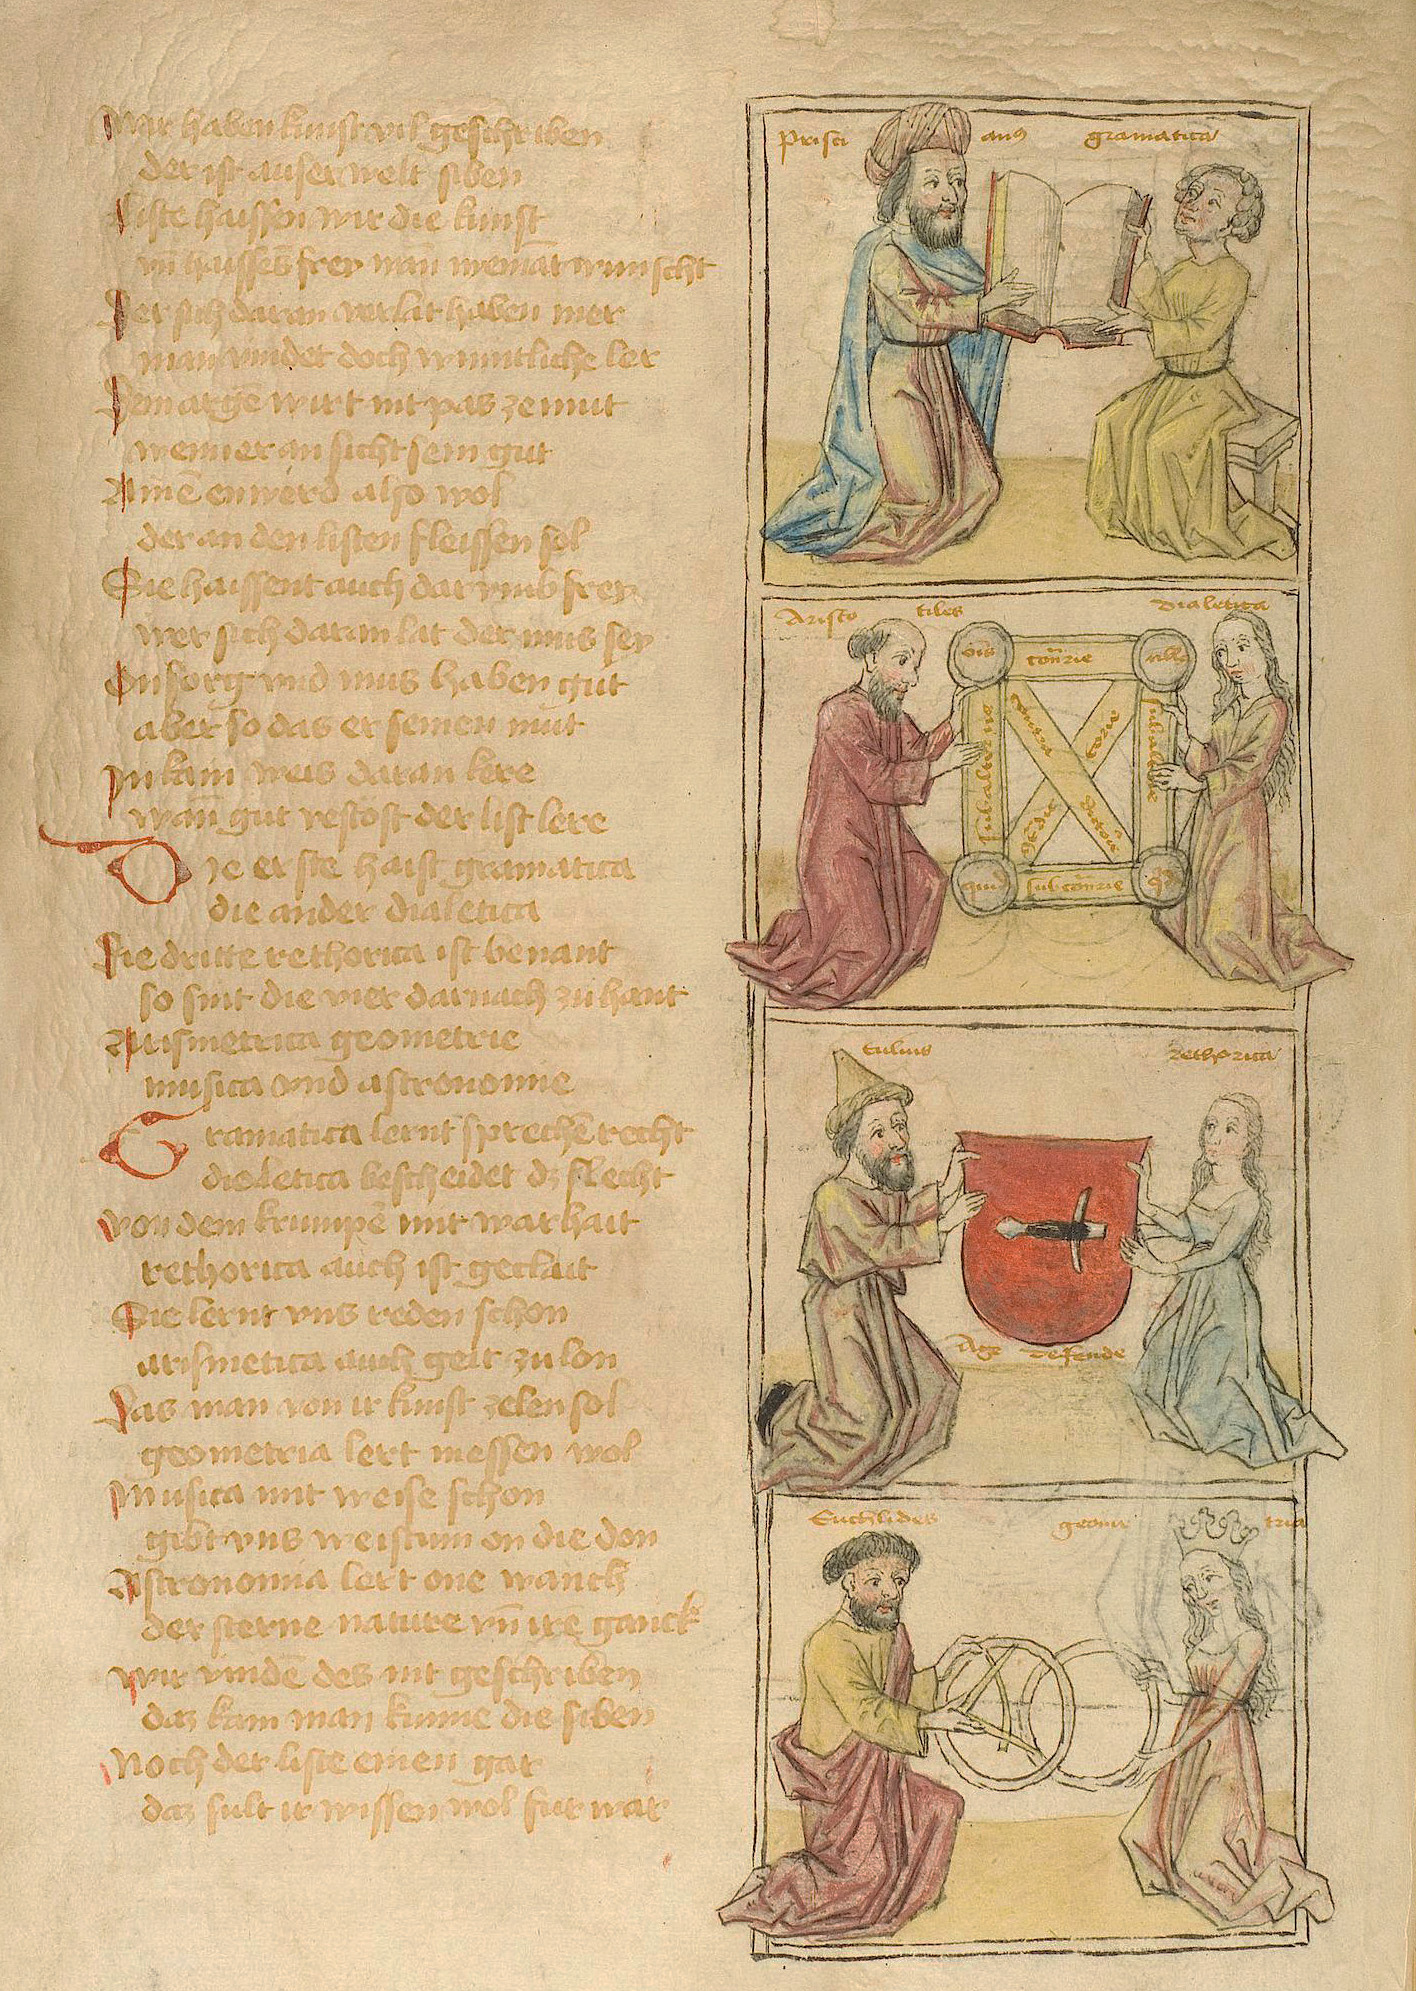 Wir haben kunst vil geschriben
der ist auser welt siben
Liste haissen wir die kunst
vn̄ haissēs frey wan̄ niemāt wunscht
Der sich daran verlat haben mer
man vindet doch wuntliche ler
Dem argē wirt nit pas ze mut
wenner an sicht sein gut
der an den listen fleissen sol
Sie haissent auch dar vmb frey
wer sich daran lat der mus sey
On sorg vnd mus haben gut
aber so das er seinen mut
In kain weis daran kere
wan̄ gut vestost der list lere
Die erste haist gramatica
die ander dialetica
Die dritte rethorica ist benant
so sint die vier darnach zu hant
Arismetrica geometrie
musica vnd astronomie
Gramatica lernt sprechē recht
dialetica bescheidet dz slecht
von dem krumpē mit warhait
rethorica auch ist geclait
Sie lernt vns reden schon
arismetica auch geit zu lon
Das man von ir kunst zelen sol
geometria lert messen wol
Musica mit weise schon
gibt vns weistum on die don
Astronomia lert one wanch
der sterne nature vn̄ irē ganck
wir vinde des nit geschriben
daz kain man kunne die siben
Noch der liste einen gar
daz sult ir wissen wol fur war
Prisci anꝰ gramatica
Aristo tiles Dialetica
om̄s contrarie nllꝰ
subalterne contra torie subalterne
dictorie
quid subcontrarie qd
tulius rethorica
Age defende
Euchlides geome tria